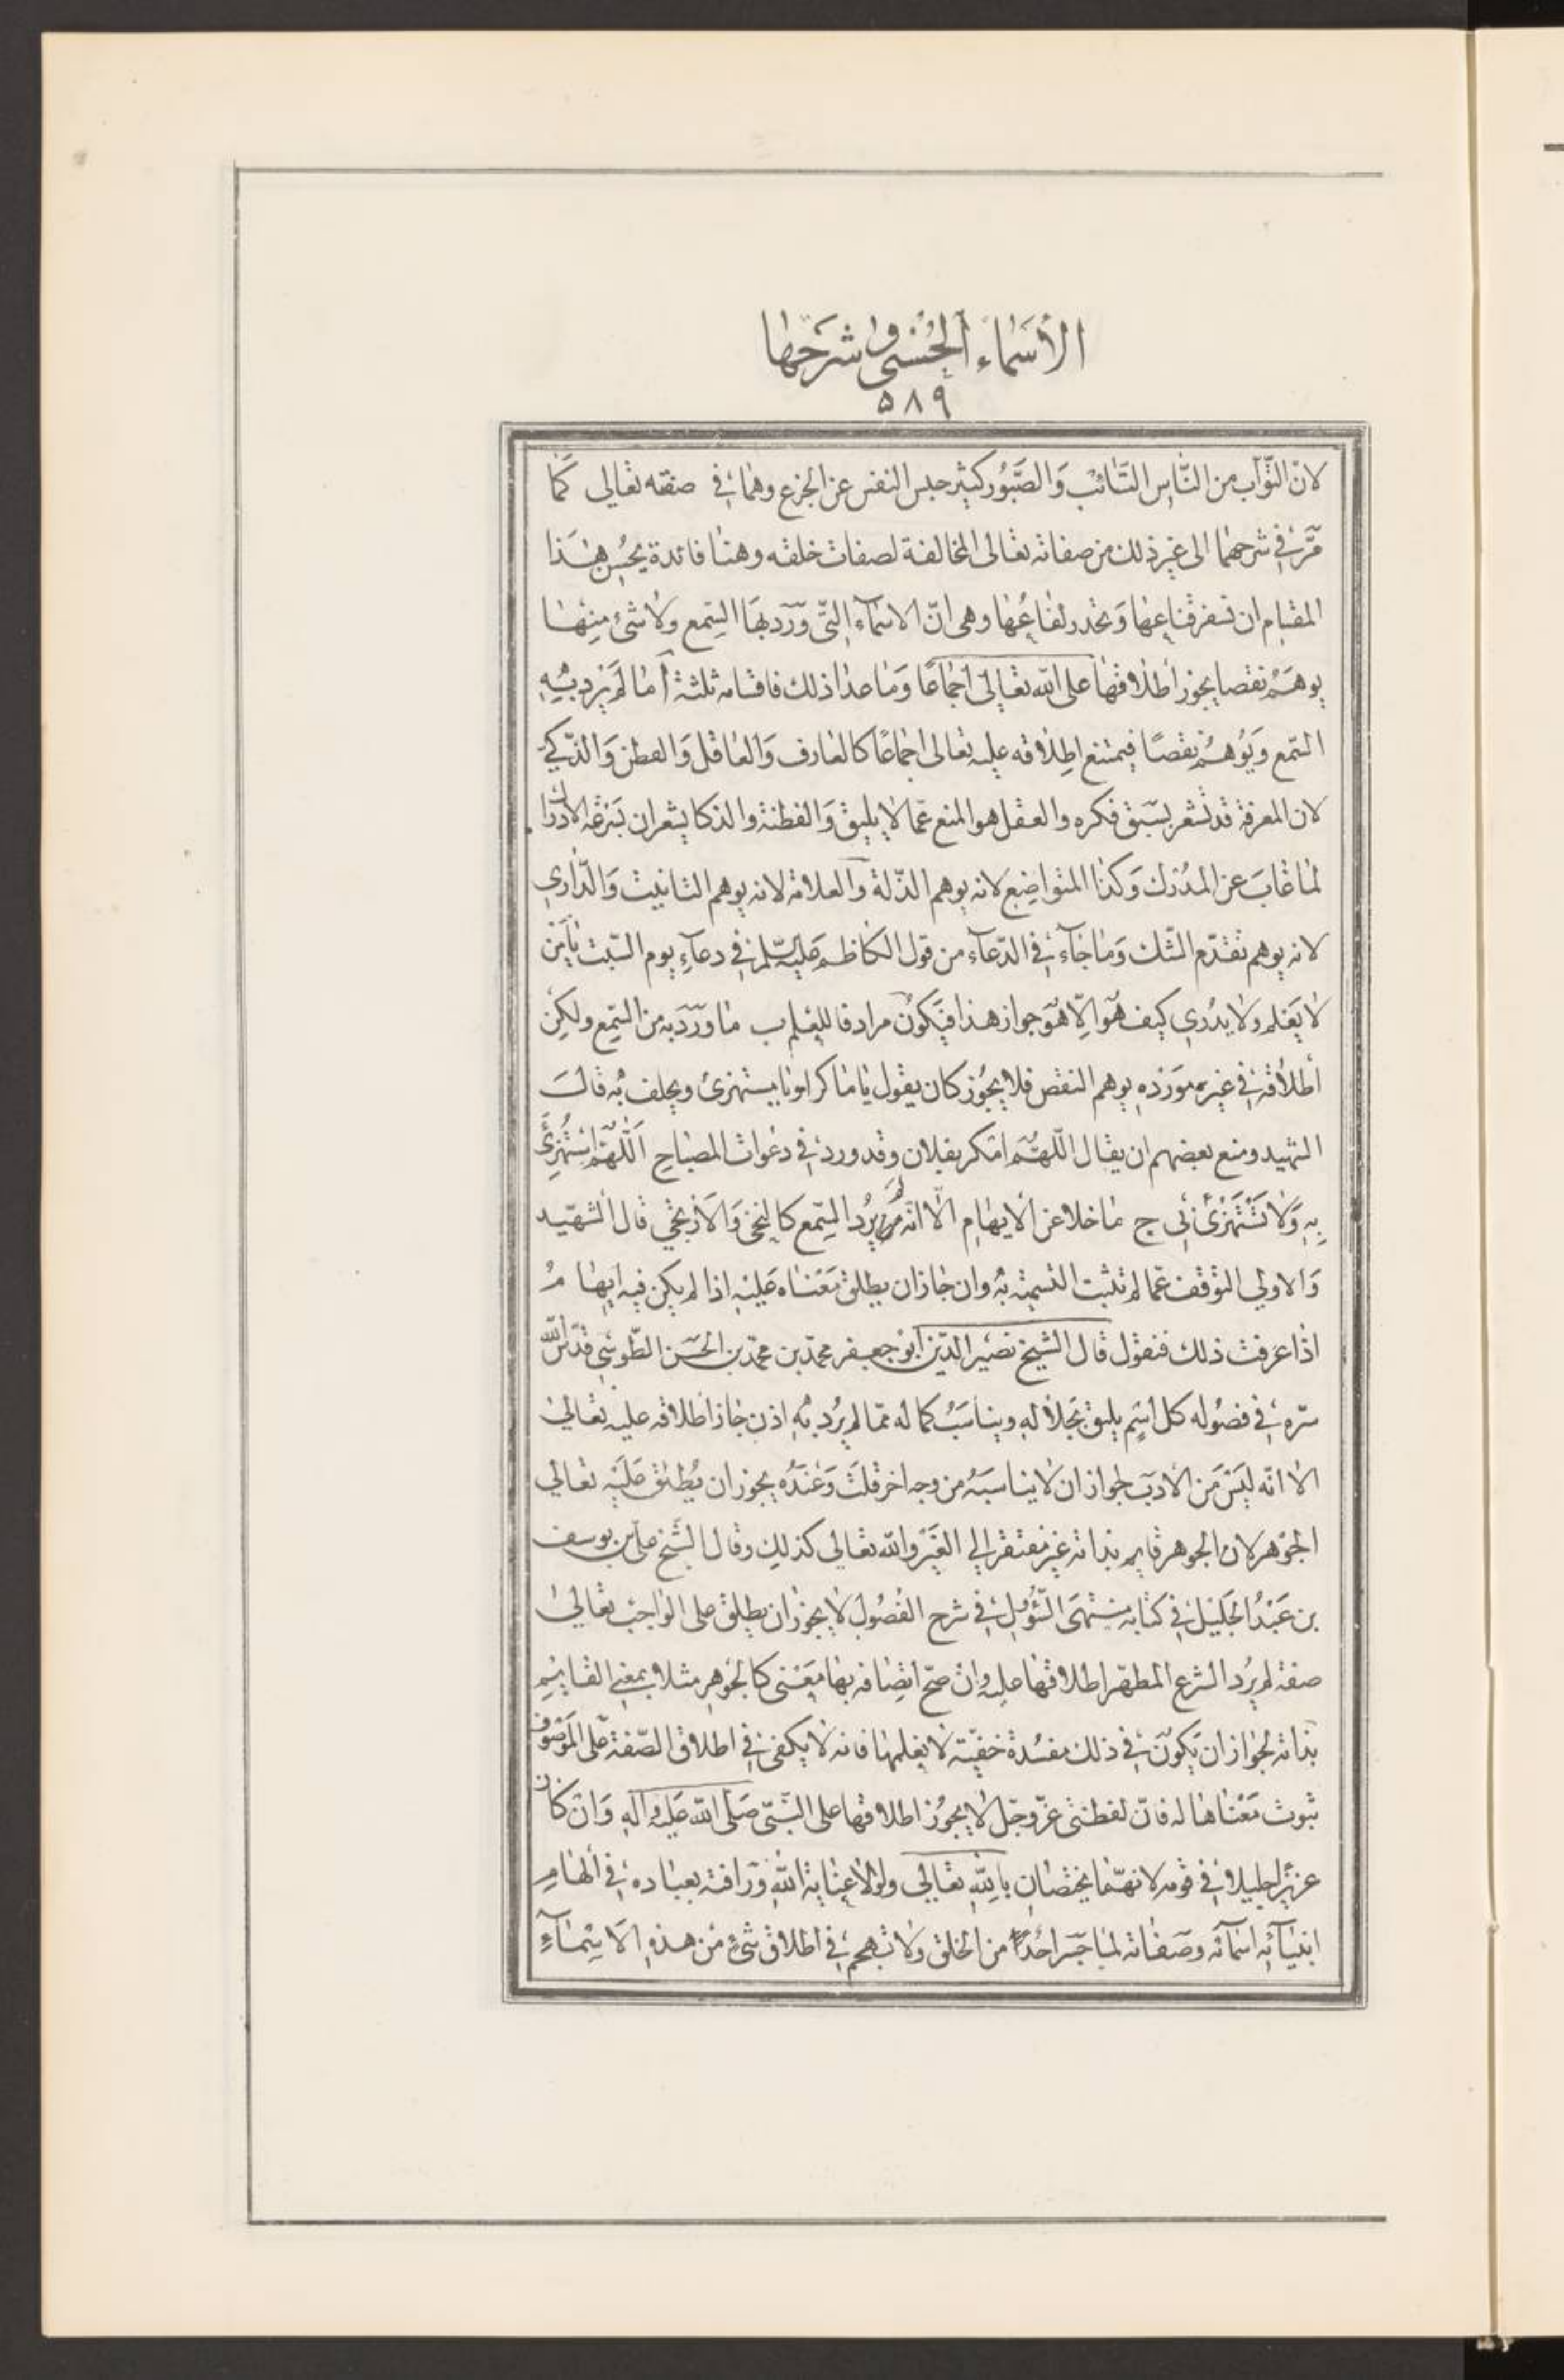 الأسماء الحسنى وشرحها
٥٨٩
لان التّوّاب من النّاس التّائب وَالصَّبُور كثير حبس النفس عن الجزع وهما في صفته تعالى كما
مرّ في شرحهما الى غير ذلك من صفاته تعالى المخالفة لصفات خلقه وهنا فائدة يحسن بهذا
المقام ان نسفر قناعها وَنحدر لفاعها وهى انّ الاسماء التّى ورد بها السّمع ولا شئ منها
يوهم نقصا يجوز اطلاقها على الله تعالى اجماعًا وَما عدا ذلك فاقسامه ثلثة أ ما لم يرد به
السّمع وَيُوهم نقصًا فيمتنع اطلاقه عليه تعالى اجماعًا كالعارف وَالعاقل وَالفطن وَالذّكي
لان المعرفة قد تشعر بسبق فكره والعقل هو المنع عمّا لا يليق وَالفطنة والذكا يشعران بسرعة الادراك
لما غابَ عن المدرك وَكذا المتواضع لانه يوهم الذّلة وَالعلامة لانه يوهم التانيث وَالدّارى
لانه يوهم تقدّم الشّك وَما جاء في الدّعاء من قول الكاظم عليه السّلم في دعاء يوم السّبت يا من
لا يعلم ولا يدرى كيف هو الّا هو جواز هذا فيكون مرادفا للعلم ب ما ورد به من السّمع ولكن
اطلاقه في غير مورده يوهم النقص فلا يجوز كان يقول يا ماكر او يا مستهزئ ويحلف به قالَ
الشهيد ومنع بعضهم ان يقال اللّهمّ امكر بفلان وقد ورد في دعوات المصباح اَللّهمّ استهزئ
به وَلا تستهزئ بى ج ما خلا عن الايهام الّا انّه لم يرد السّمع كالنخى وَالاَريحى قال الشهيد
وَالاولى التوقف عمّا لم تثبت التسمية به وان جاز ان يطلق معناه عليه اذا لم يكن فيه ايهام
اذا عرفت ذلك فنقول قال الشيخ نصير الدّين ابو جعفر محمّد بن محمّد بن الحسن الطّوسى قدّس الله
سرّه في فصوله كل اسم يليق بجلاله ويناسب كماله ممّا لم يرد به اذن جاز اطلاقه عليه تعالى
الا انّه ليس من الادب لجواز ان لا يناسبه من وجه اخر قلت وَعنده يجوز ان يطلق عليه تعالى
الجوهر لان الجوهر قايم بذاته غير مفتقر الى الغير والله تعالى كذلك وقال الشّيخ على بن يوسف
بن عبد الجليل في كتابه منتهى السّؤل في شرح الفصول لا يجوز ان يطلق على الواجب تعالى
صفة لم يرد الشرع المطهّر اطلاقها عليه وان صحّ اتصافه بها معنى كالجوهر مثلا بمعنى القايم
بذاته لجواز ان يكون في ذلك مفسدة خفيّة لا يعلمها فانه لا يكفى في اطلاق الصّفة على الموصوف
ثبوت معناها له فانّ لفظتى عزّ وجلّ لا يجوز اطلاقها على النّبىّ صلّى الله عليه وآله وَان كان
عزيزا جليلا في قومه لانهما يختصّان بالله تعالى ولولا عناية الله ورافته بعباده في الهام
انبيائه اسمائه وصفاته لما جسر احد من الخلق ولا تهجم في اطلاق شئ من هذه الاسماء